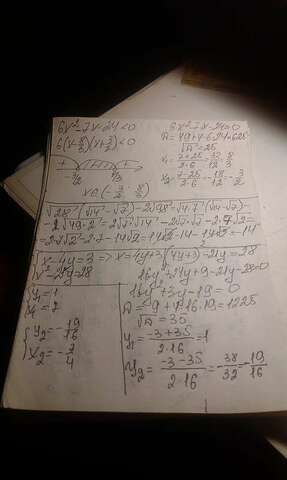 6x²-7x-24<0
6(x-8/3)(x+3/2)<0
+ - +
-3/2 8/3
x∈(-3/2; 8/3)
6x²-7x-24=0
D=49+4·6·24=625
√D=25
x₁=7+25/2·6=32/12=8/3
x₂=7-25/2·6=-18/12=-3/2
√28(√14-√7)-2√98=√4·7(√14-√7)-
-2√49·2=2√7·√14-2√7·√7-2·7√2=
=2·7√2-2·7-14√2=14√2-14-14√2=-14
{x-4y=3 => x=4y+3
x²-21y=28
(4y+3)²-21y=28
16y²+24y+9-21y-28=0
16y²+3y-19=0
D=9+4·16·19=1225
√D=35
y₁=-3+35/2·16=1
y₂=-3-35/2·16=-38/32=-19/16
{y₁=1
x₁=7
{y₂=-19/16
x₂=-7/4